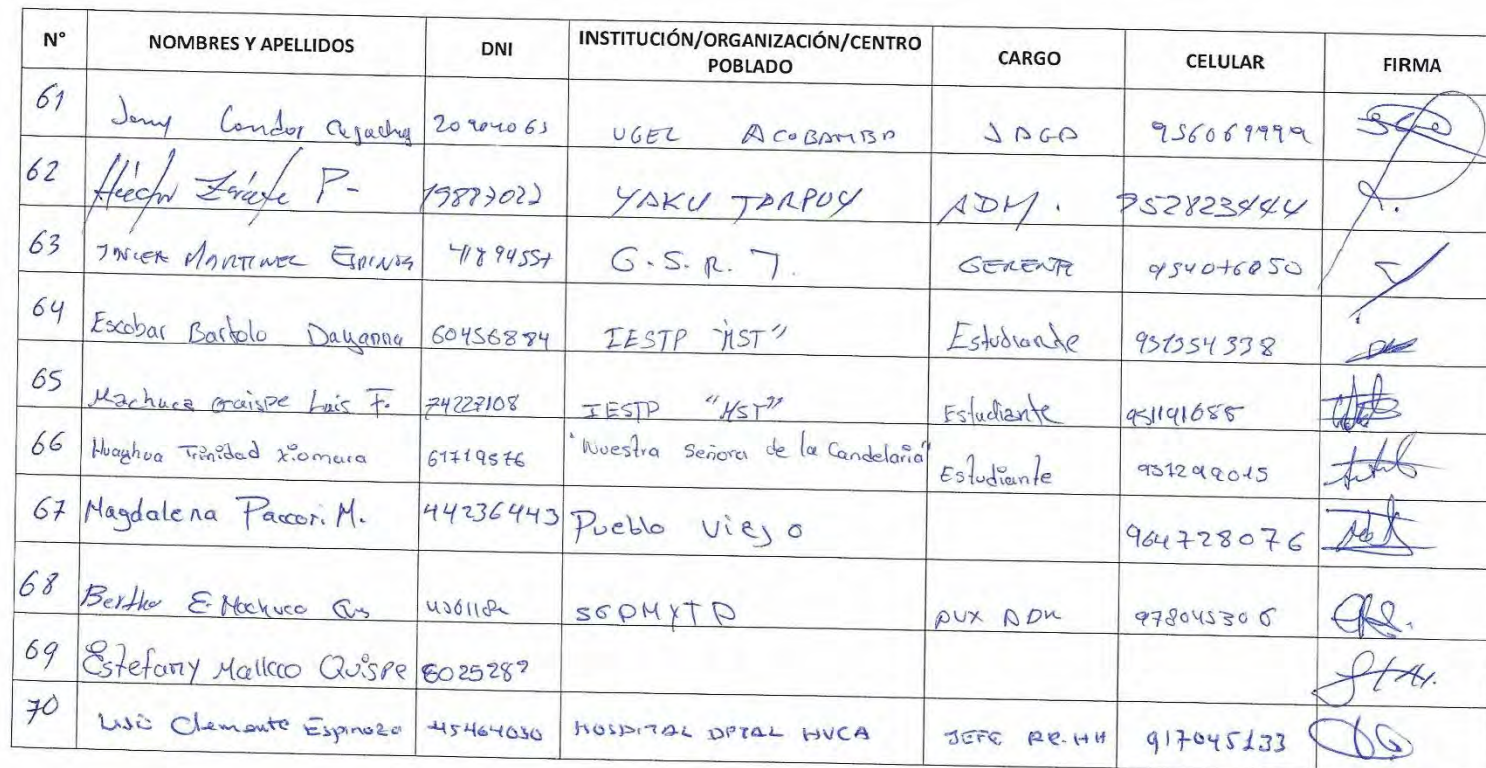 N° NOMBRES Y APELLIDOS DNI INSTITUCIÓN/ORGANIZACIÓN/CENTRO POBLADO CARGO CELULAR FIRMA
61 Jenny Condor UGEL ACOBAMBA JAGA 956069999
62 Héctor Zárate P- 19887022 YAKU TARPUY ADM. 952823444
63 MARTINEZ 41894557 G.S.R.T. GERENTE 954076050
64 Escobar Bartolo Dayanna 60456884 IESTP "HST" Estudiande 951354338
65 Machuca Luis F. 74227108 IESTP "HST" Estudiante
66 Huayhua Trinidad Xiomara 61719576 "Nuestra Señora de la Candelaria" Estudiante 951299015
67 Magdalena Paccori. M. 44236443 Pueblo Viejo 964728076
68 Bertha E. Machuca AUX ADM 978045306
69 Estefany Mallcco Quispe
70 Luis Clemente Espinoza 45464030 HOSPITAL DPTAL HVCA JEFE RR.HH 917045133